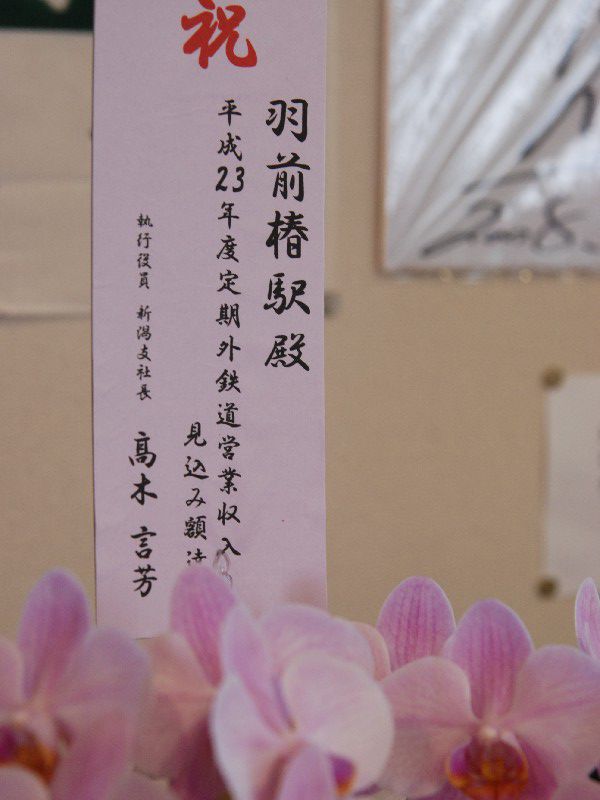 祝
羽前椿駅殿
平成23年度定期外鉄道営業収入
見込み額達
執行役員 新潟支社長 髙木 言芳
2008.